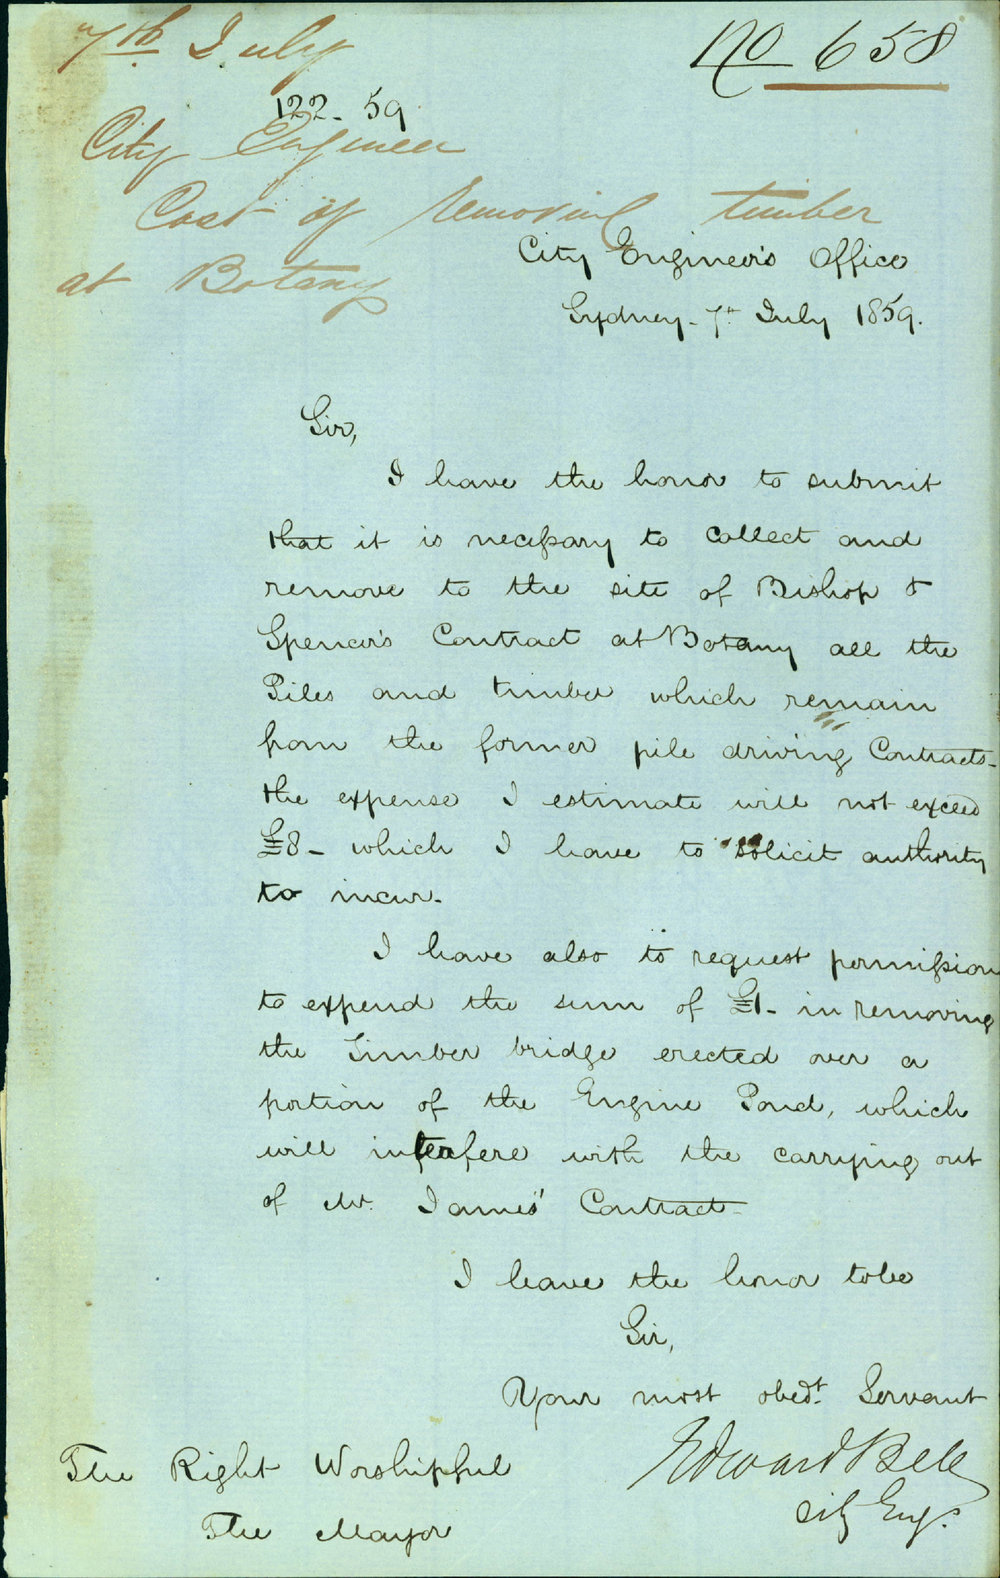 7th July
No 658
122-59
City Engineer
Cost of removing timber
at Botany
City Engineer's Office
Sydney - 7th July 1859.
Sir,
I have the honor to submit
that it is necessary to collect and
remove to the site of Bishop &
Spencer's Contract at Botany all the
Piles and timber which remain
from the former pile driving Contracts-
the expense I estimate will not exceed
£8 - which I have to solicit authority
to incur.
I have also to request permission
to expend the sum of £1 - in removing
the Timber bridge erected over a
portion of the Engine Pond, which
will interfere with the carrying out
of Mr. James' Contract-
I have the honor to be
Sir,
Your most obedt. Servant
Edward Bell
City Engr.
The Right Worshipful
The Mayor